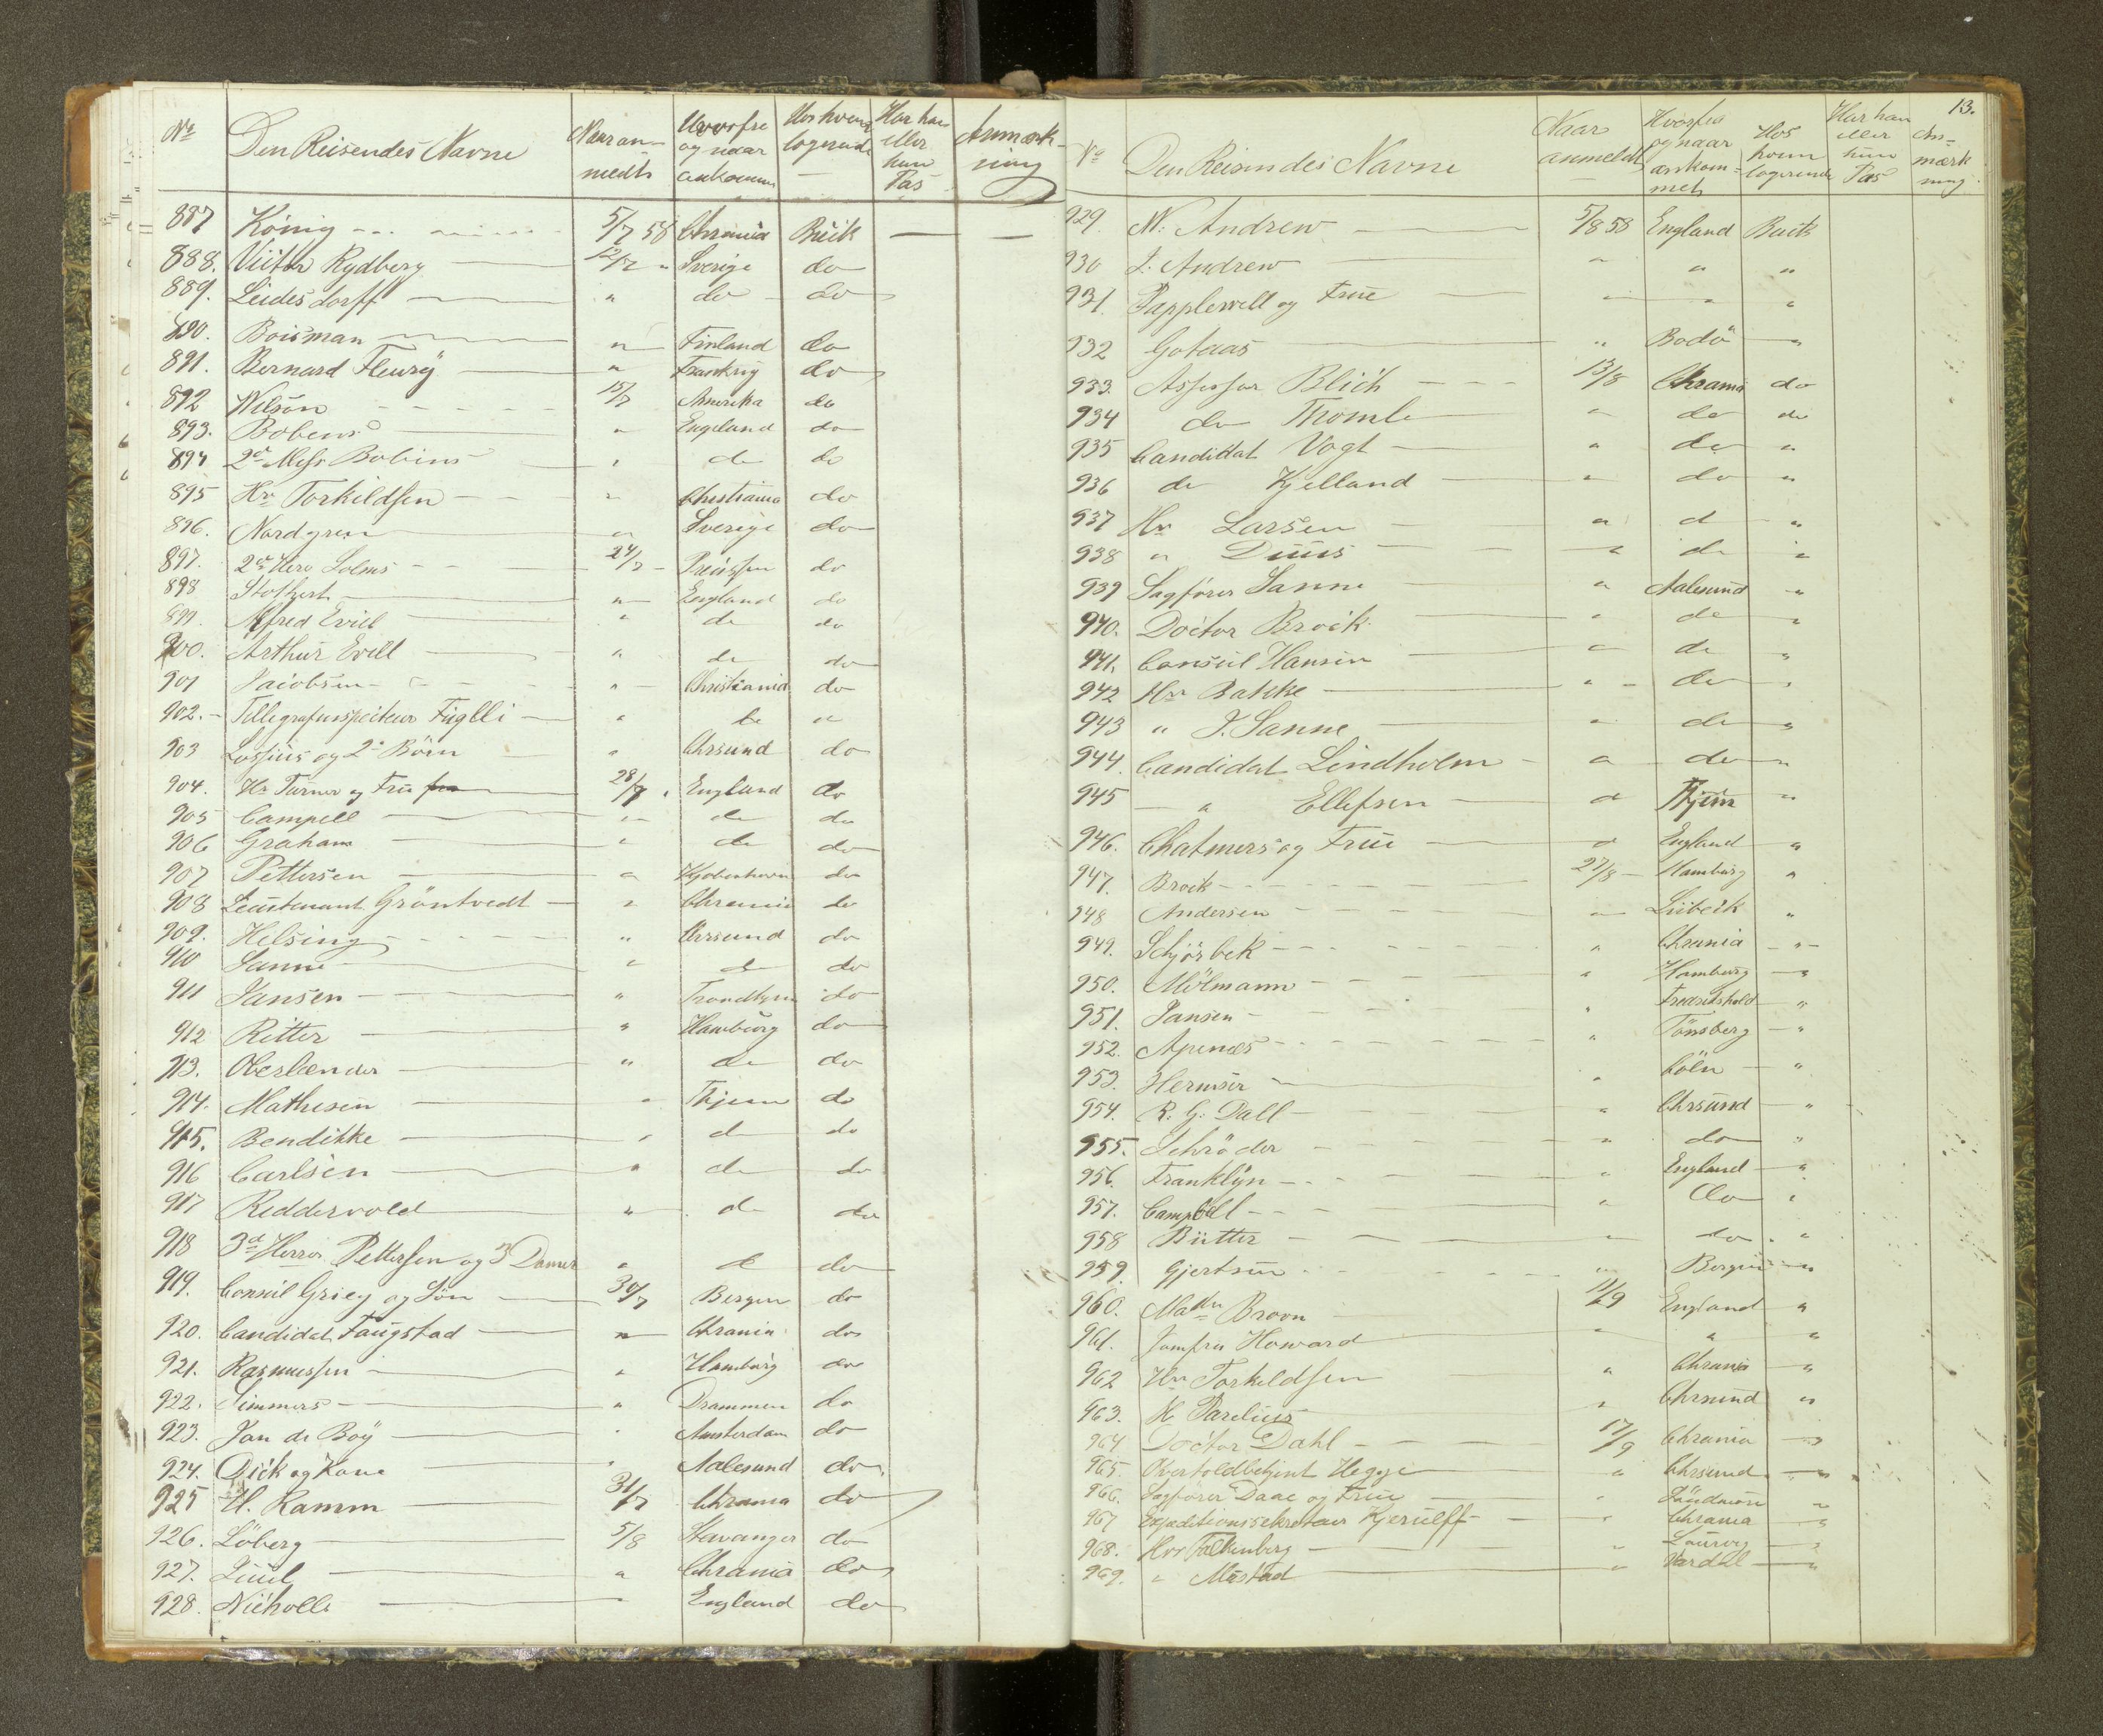 Nº Den Reisendes Navne Naar anmeldt Hvorfra og naar ankommen Hos hvem logerende Har han eller hun Pas Anmærkning
887 König 5/7 58 Chrania Buck
888. Victor Rydberg 12/7 " Sverige do
889. Leidesdorff " do do
890. Boisman " Finland do
891. Bernard Fleurÿ " Frankrig do
892 Wilson 15/7 Amerika do
893. Bobens " England do
894 2de Miss Bobins " do do
895 Hr Torkildsen " Christiania do
896. Nordgren " Sverige do
897. 2de Herr Solms 24/7 Preussen do
898 Stothert " England do
899. Alfred Evill " do do
900. Arthur Evill " do do
901 Jacobsen " Christiania do
902. Tellegrafinspecteur Fuglli " do "
903 Lossius og 2 Börn " Chrsund do
904. Hr Turner og Frue 28/7 " England do
905 Campell " do do
906 Graham " do do
907 Pettersen " Kjobenhavn do
908 Lieutenant Gröntvedt " Chrania do
909. Helsing " Chrsund do
910 Sanne " do do
911 Jansen " Trondhjem do
912 Ritter " Hamburg do
913. Oberlænder " do do
914. Mathisen " Thjem do
915. Bendikke " do do
916 Carlsen " do do
917 Riddervold " do do
918 3de Herrer Pettersen og 3 Damer " do do
919. Consul Grieg og Sön 30/7 Bergen do
920. Candidat Faugstad " Chrania do
921. Rasmussen " Hamburg do
922. Simmers " Drammen do
923. Jan de Boÿ " Amsterdam do
924. Dick og Kone " Aalesund do
925 H. Ramm 31/7 Chrania do
926. Löberg 5/8 Stavanger do
927. Juul " Chrania do
928. Nicholls " England do
13.
Nº Den Reisendes Navne Naar anmeldt Hvorfra og naar ankommet Hos hvem logerende Har han eller hun Pas Anmærkning
929. N. Andrew 5/8 58 England Buck
930 J. Andrew " " "
931. Papplewell og Frue " " "
932 Gotaas " Bodö "
933. Assessor Blich 13/8 Chrania do
934 do Thomle " do do
935 Candidat Vogt " do "
936 do Kjelland " do "
937 Hr Larsen " d "
938 " Duus " do "
939 Sagförer Sanne " Aalesund "
940. Doctor Brock " do "
941. Consul Hansen " do "
942 Hr Bakke " do "
943 " J. Sanne " do "
944. Candidat Lindholm " do "
945 " Ellefsen " Thjem "
946. Chatmers og Frue " England "
947. Brock 27/8 Hamburg "
948 Andersen " Lübeck "
949. Schjösbek " Chrania "
950. Mölmann " Hamburg "
951. Jansen " Fredrikshald "
952. Apenæs " Tönsberg "
953. Hermser " Cöln "
954. R. G. Dall " Chrsund "
955. Schröder " do "
956. Franklÿn " England "
957. Campbell " do "
958 Butter " do "
959. Gjertsen " Bergen "
960. Madm Broon 11/9 England "
961. Jomfru Howard " " "
962 Hr Torkildsen " Chrania "
963. H Parelius " Chrsund "
964 Doctor Dahl 17/9 Chrania "
965. Overtoldbetjent Hegge " Chrsund "
966. Sagförer Daae og Frue " Söndmöre "
967 Expeditionssekretair Kjerulff " Chrania "
968. Herr Falkenberg " Laurvig "
969. " Mestad " Vardal "